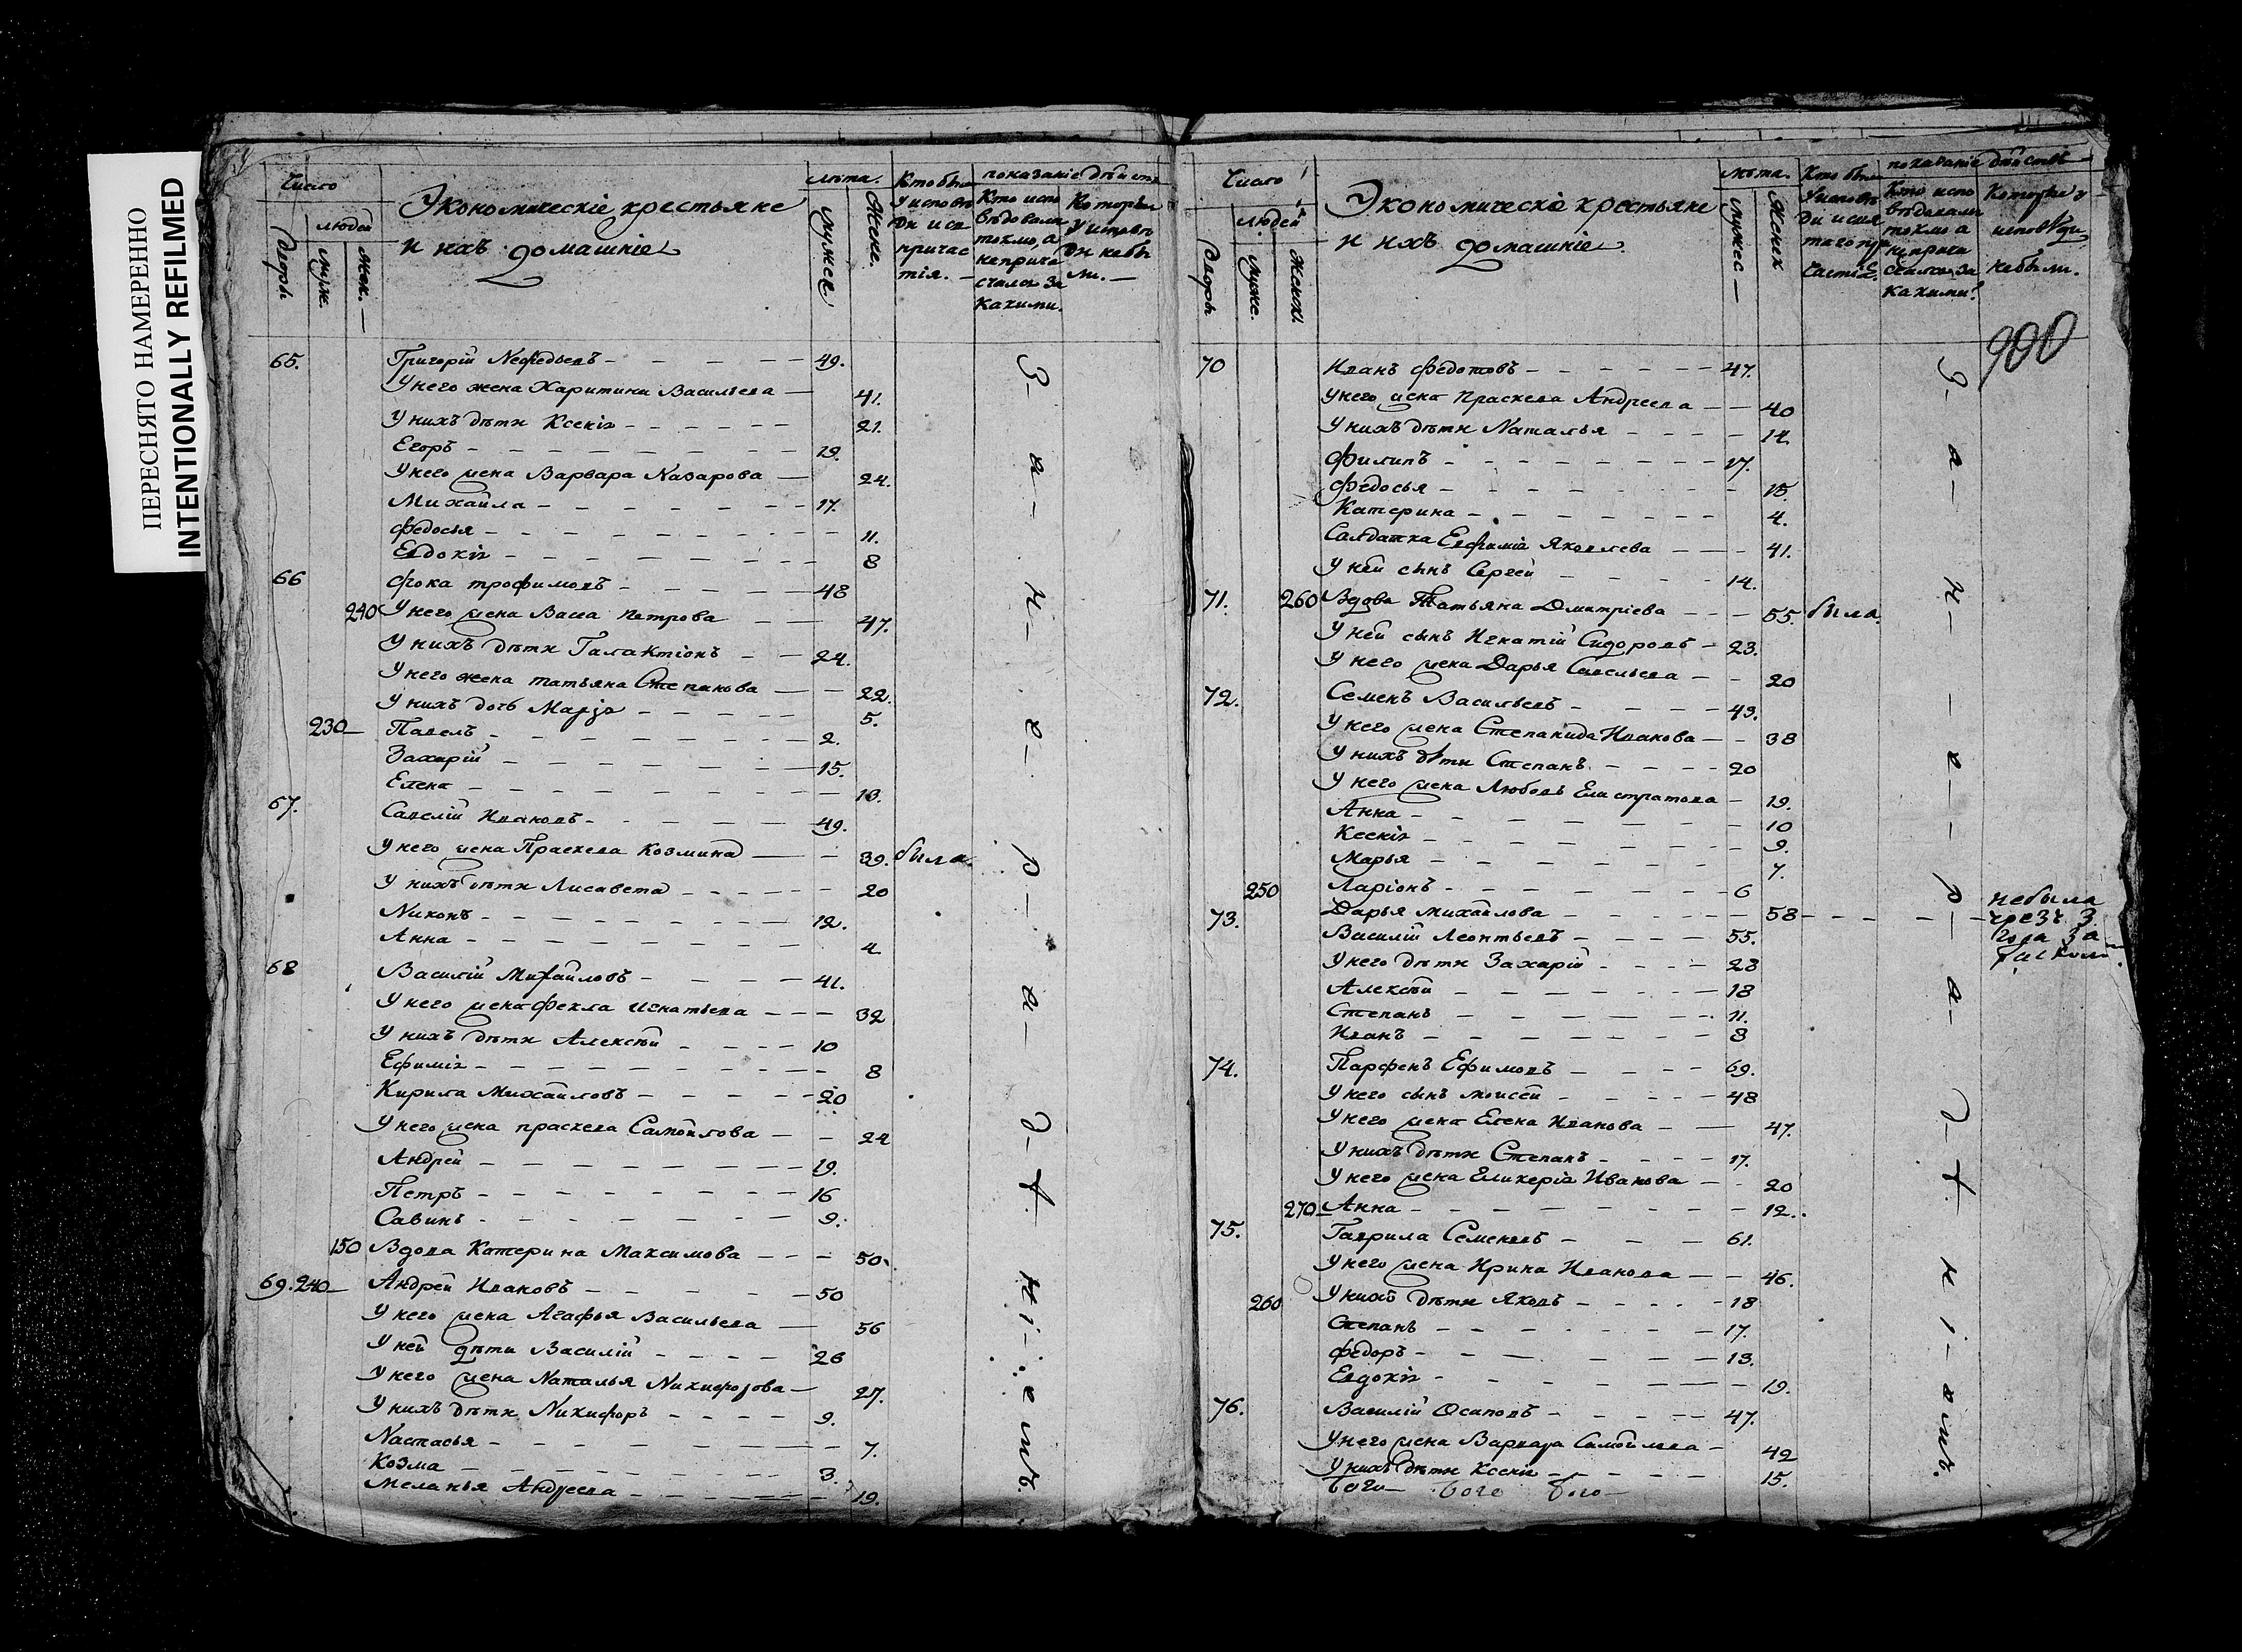 ПЕРЕСНЯТО НАМЕРЕННО
INTENTIONALLY REFILMED
Число
людей
Дворы
муж.
жен.
Экономическіе крестьяне
и ихъ домашніе
лѣта.
мужес
женс.
Кто былъ
У исповѣ
ди и св
причас
тія.
показаніе дѣйств
Кто испо
вѣдовалъ
токмо, а
неприча
стился за
какими.
Которыи
У исповѣ
ди небы
ли.
65. Григорій Нефедьевъ 49.
У него жена Харитина Васильева 41.
У нихъ дѣти Ксенія 21.
Егоръ 19.
У него жена Варвара Назарова 24.
Михайла 17.
Федосья 11.
Евдокія 8
66 Фока трофимовъ 48
240 У него жена Васса Петрова 47.
У нихъ дѣти Галактіонъ 24.
У него жена татьяна Степанова 22.
У нихъ дочь Марія 5.
230 Павелъ 2.
Захарій 15.
Елена 13.
67. Савелій Ивановъ 49.
У него жена Прасковя Козмина 39. была
У нихъ дѣти Лисавета 20
Никонъ 12.
Анна 4
68 Василій Михайловъ 41.
У него жена Фекла Игнатьева 32
У нихъ дѣти Алексѣй 10
Ефимія 8
Кирила Михайловъ 20
У него жена прасковя Самойлова 24
Андрей 19.
Петръ 16
Савинъ 9.
150 Вдова Катерина Максимова 50
69. 240 Андрей Ивановъ 50
У него жена Агафья Васильева 56
У ней дѣти Василій 26
У него жена Наталья Никифорова 27.
У нихъ дѣти Никифоръ 9.
Настасья 7.
Козма 3.
Меланья Андреева 19.
За не раденіемъ.
Число
людей
Дворы
муже.
женск.
Экономическіе крестьяне
и ихъ домашніе
лѣта.
мужес
женск
Кто былъ
У исповѣ
ди и свя
таго при
частія.
показаніе дѣйствъ
Кто испо
вѣдовалъ
токмо а
неприча
стился за
какими.
Которые у
исповѣди
небыли.
900
70 Иванъ Федотовъ 47.
У него жена Прасковя Андреева 40
У нихъ дѣти Наталья 14
Филипъ 17.
Федосья 15.
Катерина 4.
Салдатка Евфимія Яковлева 41.
У ней сынъ Сергей 14.
71. 260 Вдова Татьяна Дмитріева 55. была
У ней сынъ Игнатій Сидоровъ 23.
У него жена Дарья Савельева 20
72. Семенъ Васильевъ 43.
У него жена Степанида Иванова 38
У нихъ дѣти Степанъ 20
У него жена Любовь Елистратова 19.
Анна 10
Ксенія 9.
Марья 7.
250 Ларіонъ 6
73. Дарья михайлова 58 небыла
чрезъ 3
Года за
Василій Леонтьевъ 55.
У него дѣти Захарій 23
Алексѣй 18
Степанъ 11.
Иванъ 8
74. Парфенъ Ефимовъ 69.
У него сынъ моисей 48
У него жена Елена Иванова 47.
У нихъ дѣти Степанъ 17.
У него жена Гликерія Иванова 20
270 Анна 12.
75. Гаврила Семеновъ 61.
У него жена Ирина Иванова 46.
260 У нихъ дѣти Яковъ 18
Степанъ 17.
Федоръ 13.
Евдокія 19.
76. Василій Осиповъ 47.
У него жена Варвара Самойлова 42
У нихъ дѣти Ксенія 15.
За не раденіемъ.